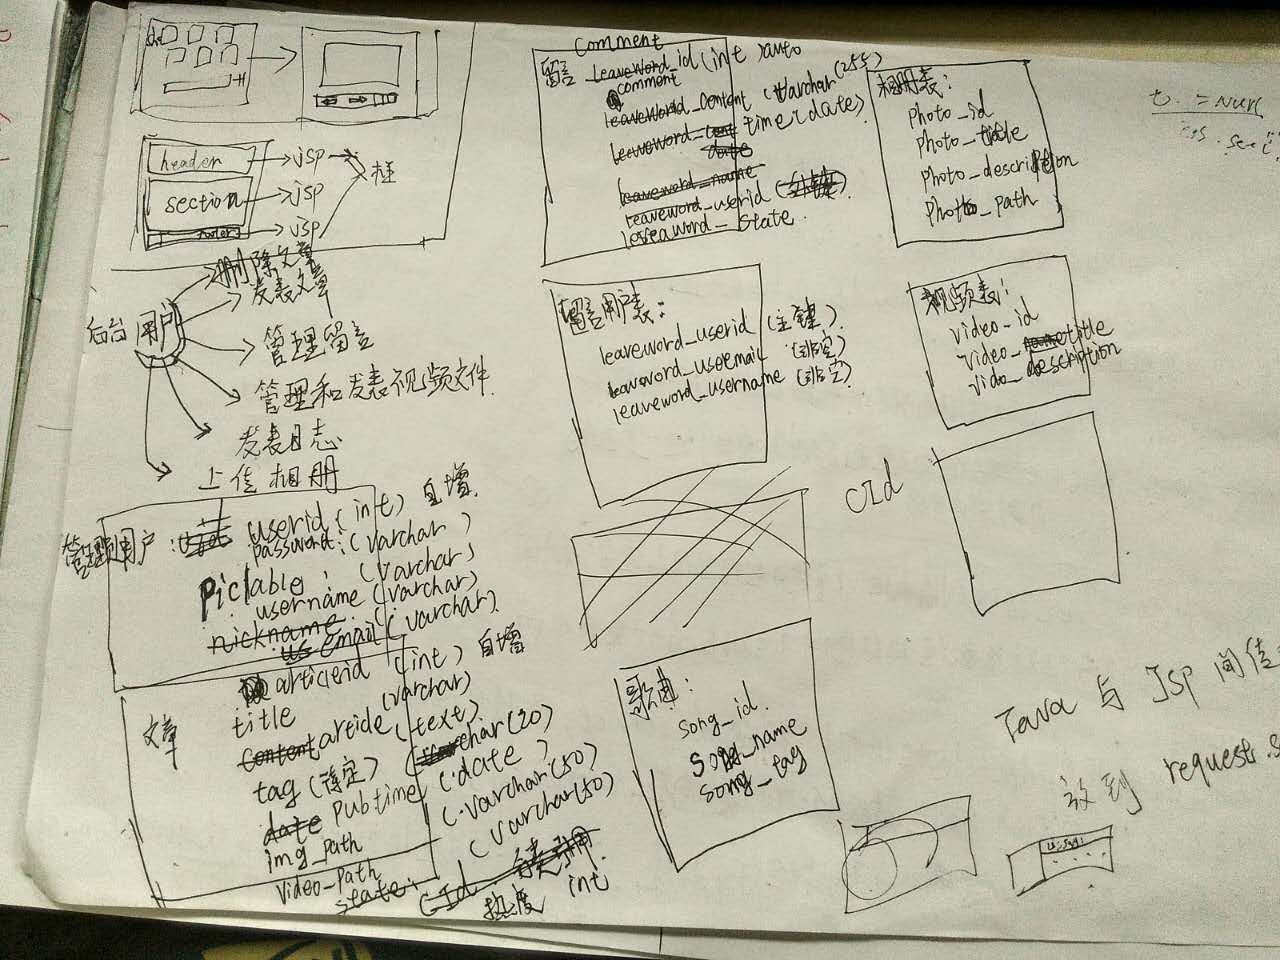 header jsp
section jsp 框
footer jsp
后台用户
删除文章
发表文章
管理留言
管理和发表视频文件
发表日志
上传相册
管理员用户: userid (int) 自增
password: (varchar)
piclable: (varchar)
username (varchar)
nickname: (
email (varchar)
文章
articleid (int) 自增
title (varchar)
content article (text)
tag (待定) char(20)
date pubtime (date)
img_path (varchar(50)
video_path (varchar(50)
state: cId
热度 int
comment
留言 leaveword_id (int) auto
comment
leaveword_content (varchar(255)
leaveword_ time: (date)
date
leaveword_name
leaveword_userid (外键)
leaveaword_state
留言用户表:
leaveword_userid (主键)
leaveword_useemail (非空)
leaveword_username (非空)
歌曲:
song_id
song_name
song_tag
相册表:
photo_id
photo_title
photo_description
photo_path
视频表:
video_id
video_name title
vido_description
cId
Java 与 Jsp 间传
放到 request.s